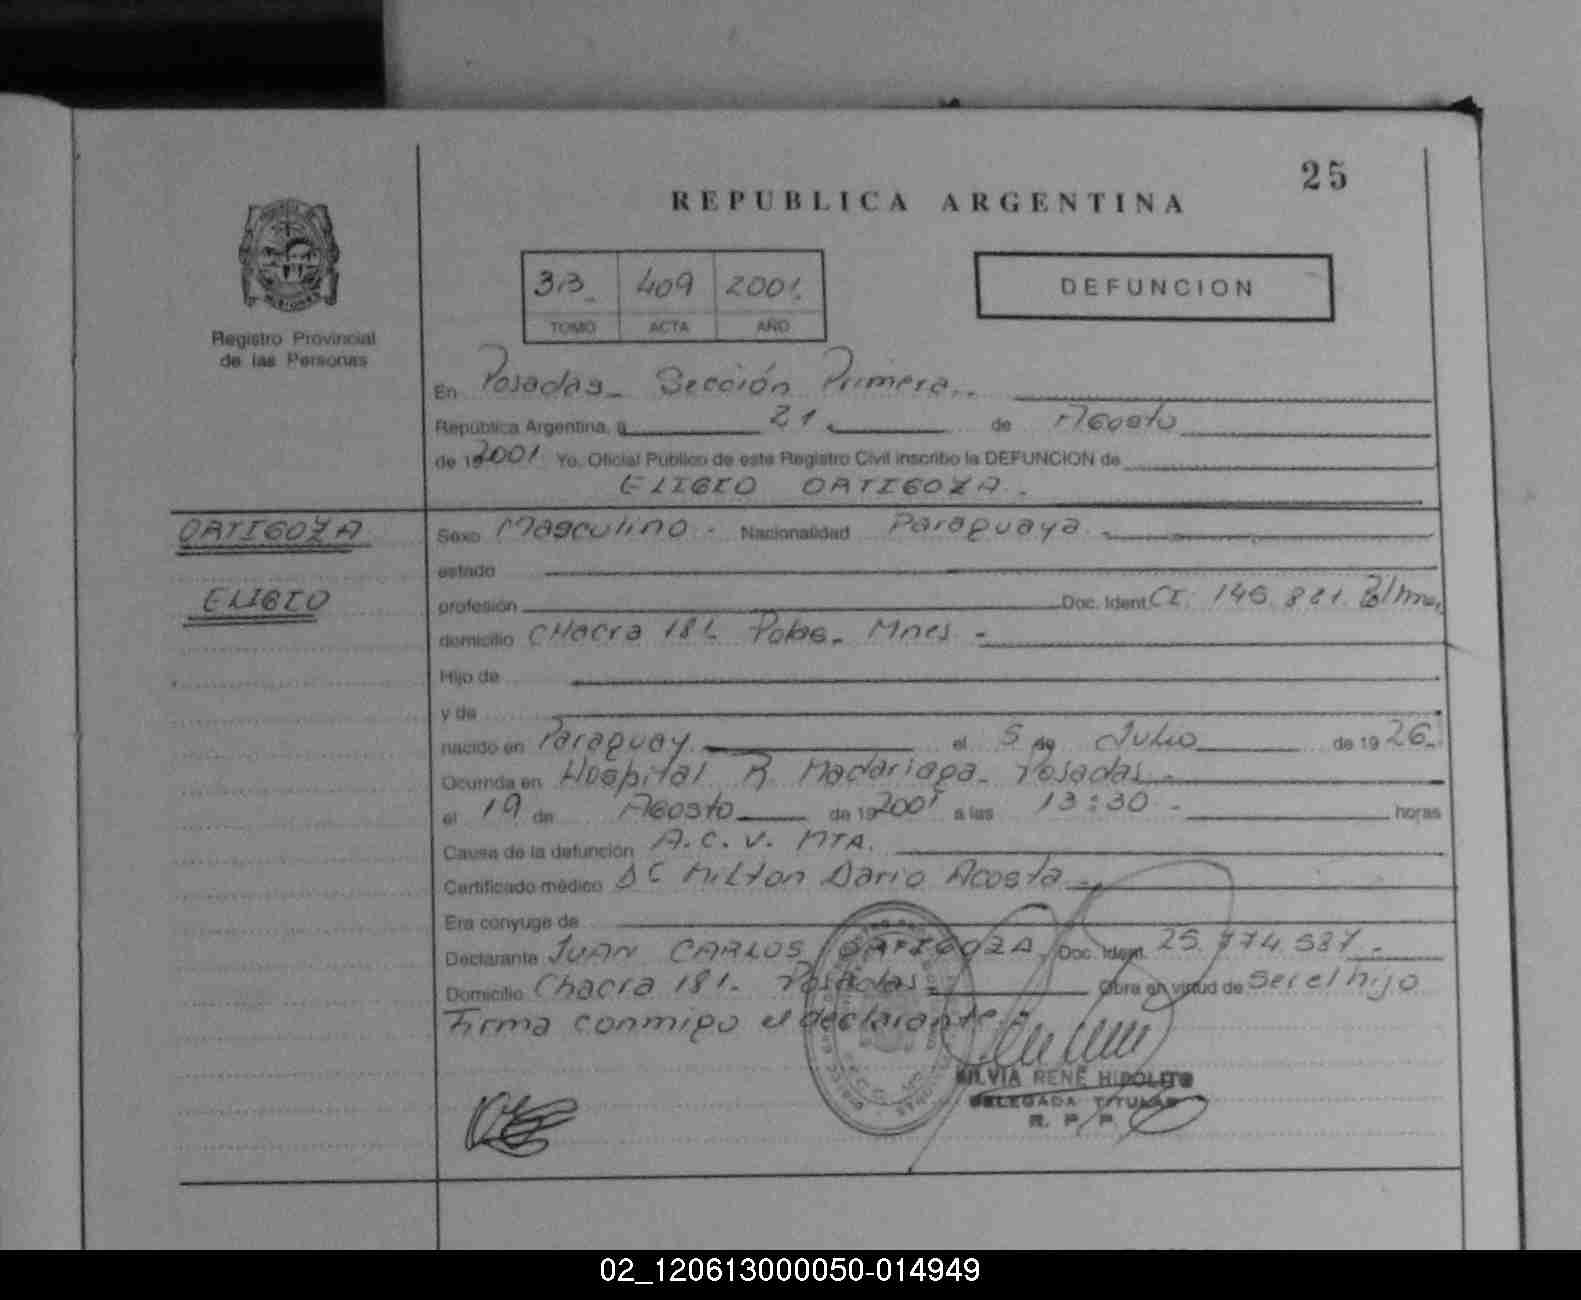 25
REPUBLICA ARGENTINA
Registro Provincial
de las Personas
33 409 2001
TOMO ACTA AÑO
DEFUNCION
En Posadas - Sección Primera
República Argentina, a 21 de Agosto
de 192001 Yo, Oficial Público de este Registro Civil inscribo la DEFUNCION de
ELIGIO ORTIGOZA
ORTIGOZA
ELIGIO
Sexo Masculino - Nacionalidad Paraguaya
estado
profesión Doc. Ident. CI.
domicilio CHacra 181. Mnes -
Hijo de
y de
nacido en Paraguay el 5 de Julio de 1926.
Ocurrida en Hospital R. Madariaga - Posadas -
el 19 de Agosto de 192001 a las 13:30 - horas
Causa de la defunción A.C.V. MTA.
Certificado médico Milton Dario Acosta -
Era conyuge de
Declarante JUAN CARLOS ORTIGOZA. Doc. Ident.
Domicilio Chacra 181 - Posadas Obra en virtud de Ser el hijo
Firma conmigo el declarante -
SILVIA RENÉ HIPOLITO
DELEGADA TITULAR
R. P. P.
02_120613000050-014949